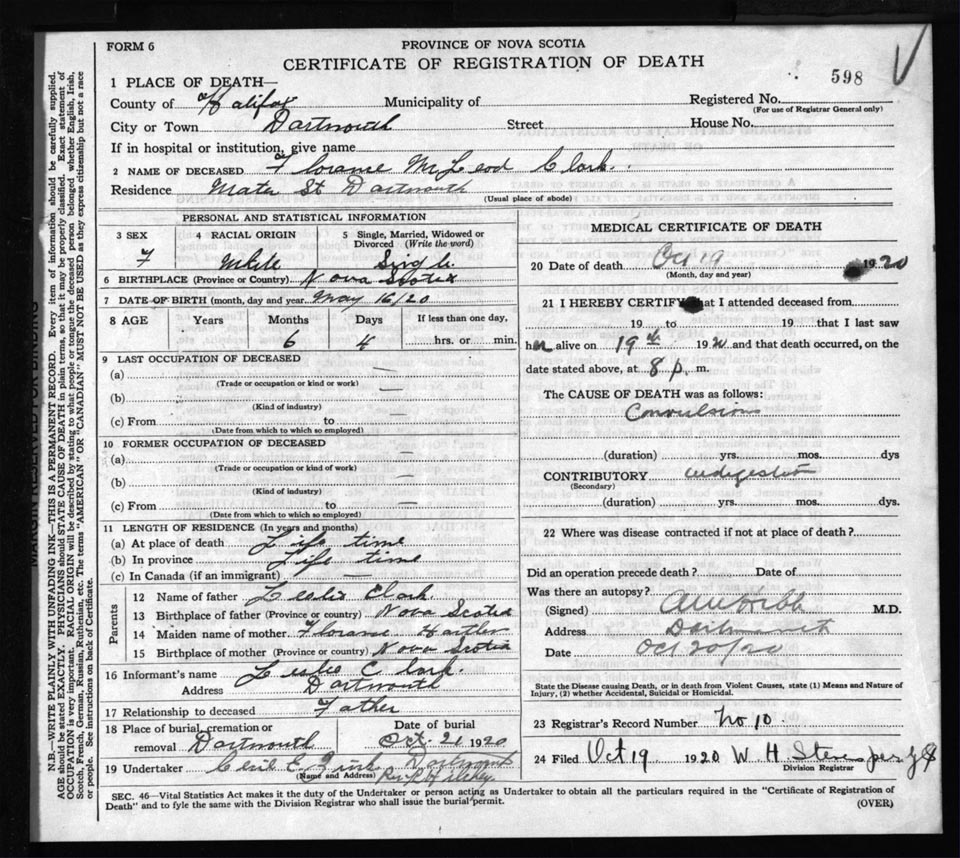 FORM 6
PROVINCE OF NOVA SCOTIA
CERTIFICATE OF REGISTRATION OF DEATH
598
1 PLACE OF DEATH—
County of Halifax Municipality of Registered No.
(For use of Registrar General only)
City or Town Dartmouth Street House No.
If in hospital or institution, give name
2 NAME OF DECEASED Florance McLeod Clark.
Residence Water St Dartmouth
(Usual place of abode)
PERSONAL AND STATISTICAL INFORMATION
3 SEX
F
4 RACIAL ORIGIN
White
5 Single, Married, Widowed or
Divorced (Write the word)
Single
6 BIRTHPLACE (Province or Country) Nova Scotia
7 DATE OF BIRTH (month, day and year) May 16/20
8 AGE Years Months Days If less than one day,
6 4 hrs. or min.
9 LAST OCCUPATION OF DECEASED
(a) —
(Trade or occupation or kind or work)
(b) —
(Kind of industry)
(c) From to —
(Date from which to which so employed)
10 FORMER OCCUPATION OF DECEASED
(a) —
(Trade or occupation or kind of work)
(b) —
(Kind of industry)
(c) From to —
(Date from which to which so employed)
11 LENGTH OF RESIDENCE (In years and months)
(a) At place of death Life time
(b) In province Life time
(c) In Canada (if an immigrant) —
Parents
12 Name of father Leslie Clark
13 Birthplace of father (Province or country) Nova Scotia
14 Maiden name of mother Florance
15 Birthplace of mother (Province or country) Nova Scotia
16 Informant's name Leslie Clark.
Address Dartmouth
17 Relationship to deceased Father
18 Place of burial, cremation or
removal Dartmouth
Date of burial
Oct 21 1920
19 Undertaker Dartmouth
(Name and Address)
MEDICAL CERTIFICATE OF DEATH
20 Date of death Oct 19 1920
(Month, day and year)
21 I HEREBY CERTIFY that I attended deceased from
19 to 19 that I last saw
her alive on 19th 1920 and that death occurred, on the
date stated above, at 8 p. m.
The CAUSE OF DEATH was as follows:
Convulsions
(duration) yrs. mos. dys
CONTRIBUTORY indigestion
(Secondary)
(duration) yrs. mos. dys.
22 Where was disease contracted if not at place of death?
Did an operation precede death? Date of
Was there an autopsy?
(Signed) M.D.
Address Dartmouth
Date Oct 20/20
State the Disease causing Death, or in death from Violent Causes, state (1) Means and Nature of
Injury, (2) whether Accidental, Suicidal or Homicidal.
23 Registrar's Record Number No 10.
24 Filed Oct 19 1920 W H
Division Registrar
SEC. 46—Vital Statistics Act makes it the duty of the Undertaker or person acting as Undertaker to obtain all the particulars required in the "Certificate of Registration of
Death" and to fyle the same with the Division Registrar who shall issue the burial permit.
(OVER)
MARGIN RESERVED FOR BINDING
N.B.—WRITE PLAINLY WITH UNFADING INK—THIS IS A PERMANENT RECORD. Every item of information should be carefully supplied.
AGE should be stated EXACTLY. PHYSICIANS should STATE CAUSE OF DEATH in plain terms, so that it may be properly classified. Exact statement of
OCCUPATION is very important. RACIAL ORIGIN will be described by stating to what people or tongue the deceased person belonged whether English, Irish,
Scotch, French, German, Russian, Ruthenian, etc. The terms "AMERICAN" OR "CANADIAN" MUST NOT BE USED as they express citizenship but not a race
or people. See instructions on back of Certificate.